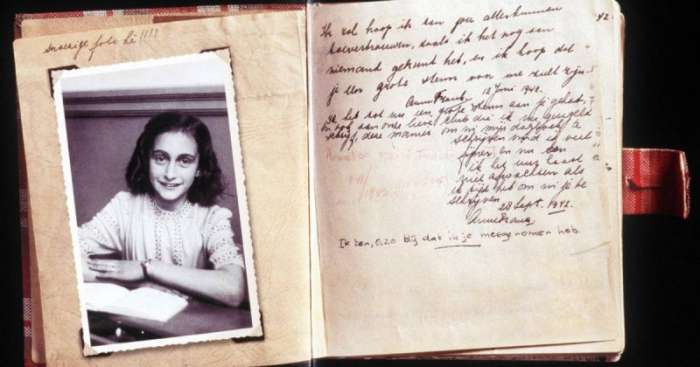 Snoezige foto hè!!!!
Ik zal hoop ik aan jou alles kunnen
toevertrouwen, zoals ik het nog aan
niemand gekund heb, en ik hoop dat
je een grote steun voor me zult zijn.
Anne Frank. 12 Juni 1942.
Ik heb tot nu toe een grote steun aan je gehad,
en ook aan onze lieve club die ik nu geregeld
schrijf, deze manier om in mijn dagboek te
schrijven vind ik veel
fijner en nu kan
ik het uur haast
niet afwachten als
ik tijd heb om in je te
schrijven.
28 Sept. 1942.
Anne Frank.
Ik ben, o, zo blij dat ik je meegenomen heb.